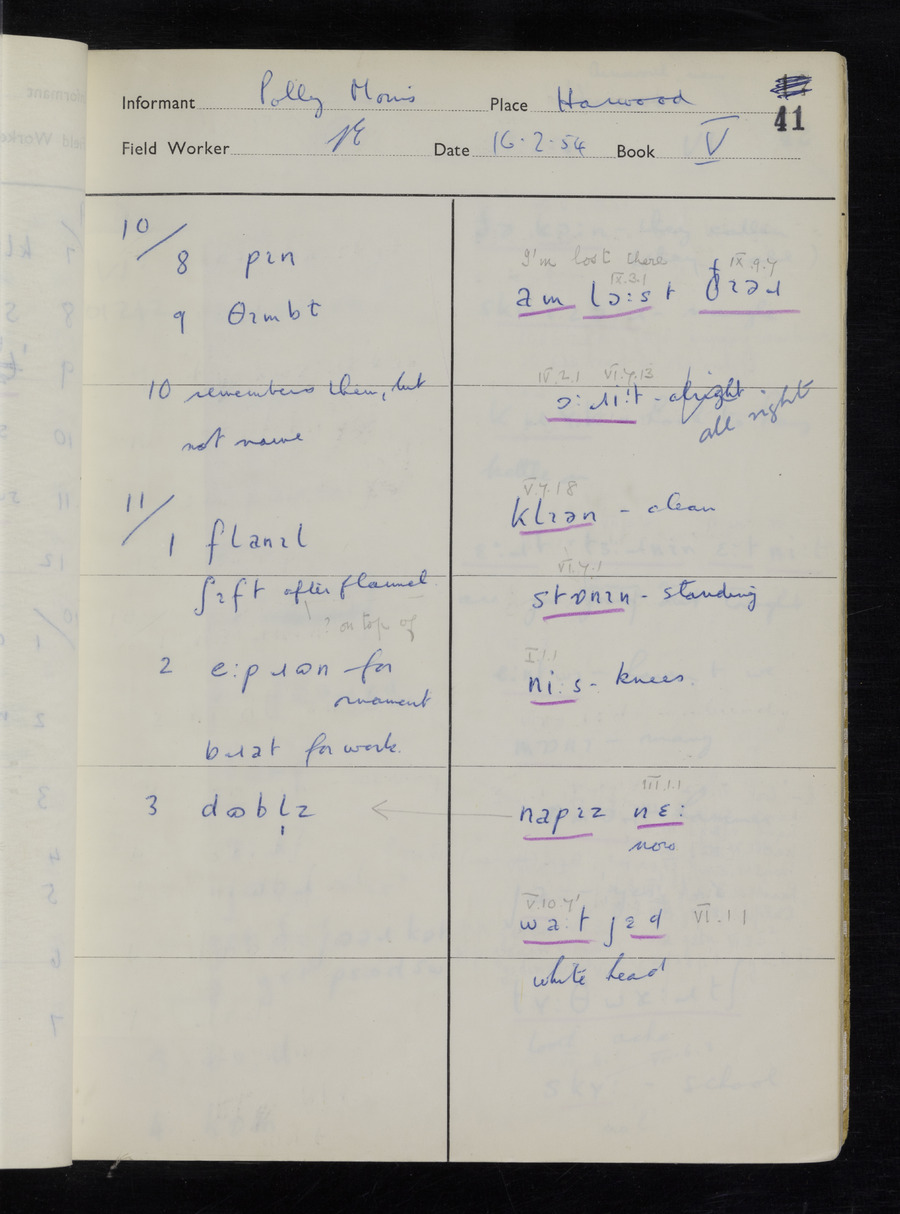 Informant Polly Morris Place Harwood
41
Field Worker Date 16.2.54 Book V
10/
8 pɪn
9 θɪmbɫ
10 remembers them, but
not name
11/
1 flanɪl
ʃɪft after flannel
? on top of
2 e:pɹən for
ornament
bɹat for work.
3
I'm lost there
IX.3.1 IX.9.4
am lɔ:st ðɪəɹ
IV.2.1 VI.7.13
ɔ:ɹi:t - alright
all right
V.7.18
klɪən - clean
VI.7.1
stɒnɪn - standing
I.1.1
ni:s - knees.
III.1.1
napɪz nɛ:
now
V.10.7 VI.1.1
wa:t jɛd
white head